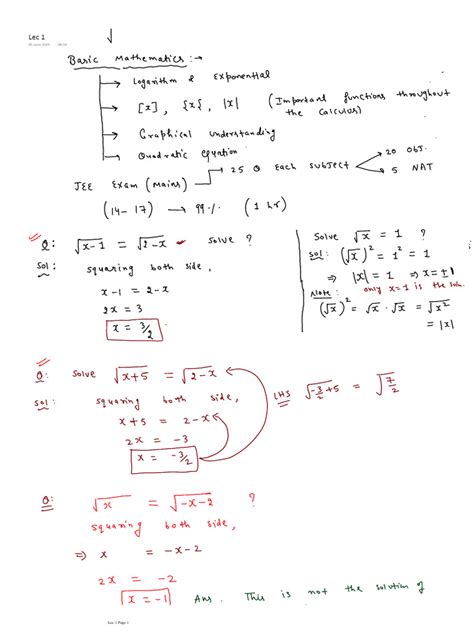 Lec 1
Basic Mathematics :→
→ Logarithm & Exponential
→ [x], {x}, |x| (Important functions throughout the Calculus)
→ Graphical understanding
→ Quadratic equation
JEE Exam (Mains) → 25 Q Each subject → 20 OBJ.
→ 5 NAT
(14-17) → 99% (1 hr)
Q: √x-1 = √2-x solve ?
Sol: squaring both side,
x-1 = 2-x
2x = 3
x = 3/2
Solve √x = 1 ?
Sol: (√x)² = 1² = 1
⇒ |x| = 1 ⇒ x = ±1
Note: only x=1 is the sol.
(√x)² = √x · √x = √x²
= |x|
Q: Solve √x+5 = √2-x
Sol: squaring both side,
x+5 = 2-x
2x = -3
x = -3/2
LHS √-3/2+5 = √7/2
Q: √x = √-x-2 ?
squaring both side,
⇒ x = -x-2
2x = -2
x = -1 Ans. This is not the solution of
Lec 1 Page 1